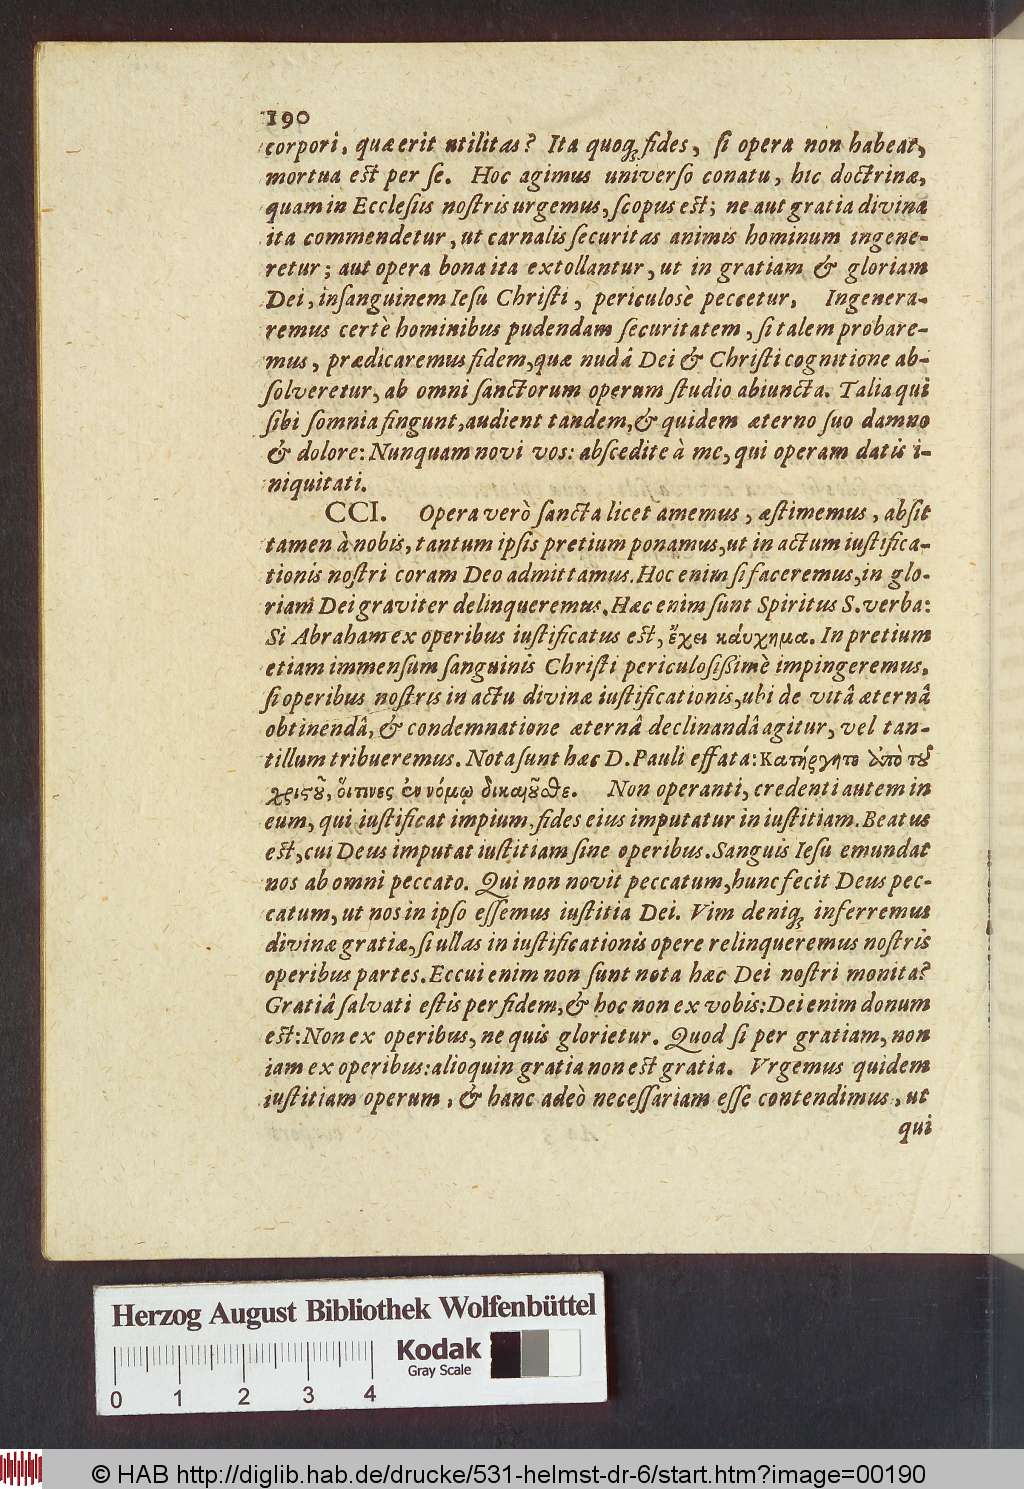 190
corpori, quæ erit utilitas? Ita quoq; fides, si opera non habeat,
mortua est per se. Hoc agimus universo conatu, hic doctrinæ,
quam in Ecclesiis nostris urgemus, scopus est; ne aut gratia divina
ita commendetur, ut carnalis securitas animis hominum ingene-
retur; aut opera bona ita extollantur, ut in gratiam & gloriam
Dei, in sanguinem Iesu Christi, periculosè peccetur. Ingenera-
remus certè hominibus pudendam securitatem, si talem probare-
mus, prædicaremus fidem, quæ nudâ Dei & Christi cognitione ab-
solveretur, ab omni sanctorum operum studio abiuncta. Talia qui
sibi somnia fingunt, audient tandem, & quidem æterno suo damno
& dolore: Nunquam novi vos: abscedite à me, qui operam datis i-
niquitati.
CCI. Opera verò sancta licet amemus, æstimemus, absit
tamen à nobis, tantum ipsis pretium ponamus, ut in actum iustifica-
tionis nostri coram Deo admittamus. Hoc enim si faceremus, in glo-
riam Dei graviter delinqueremus. Hæc enim sunt Spiritus S. verba:
Si Abraham ex operibus iustificatus est, ἔχει κάυχημα. In pretium
etiam immensum sanguinis Christi periculosißimè impingeremus,
si operibus nostris in actu divinæ iustificationis, ubi de vitâ æternâ
obtinendâ, & condemnatione æternâ declinandâ agitur, vel tan-
tillum tribueremus. Nota sunt hæc D. Pauli effata: Κατήργητο ἀπὸ τοῦ
χριστοῦ, ὅιτινες ἐν νόμῳ δικαιοῦσθε. Non operanti, credenti autem in
eum, qui iustificat impium, fides eius imputatur in iustitiam. Beatus
est, cui Deus imputat iustitiam sine operibus. Sanguis Iesu emundat
nos ab omni peccato. Qui non novit peccatum, hunc fecit Deus pec-
catum, ut nos in ipso essemus iustitia Dei. Vim deniq; inferremus
divinæ gratiæ, si ullas in iustificationis opere relinqueremus nostris
operibus partes. Eccui enim non sunt nota hæc Dei nostri monita?
Gratiâ salvati estis per fidem, & hoc non ex vobis: Dei enim donum
est: Non ex operibus, ne quis glorietur. Quod si per gratiam, non
iam ex operibus: alioquin gratia non est gratia. Vrgemus quidem
iustitiam operum, & hanc adeò necessariam esse contendimus, ut
qui
Herzog August Bibliothek Wolfenbüttel
Kodak
Gray Scale
0 1 2 3 4
© HAB http://diglib.hab.de/drucke/531-helmst-dr-6/start.htm?image=00190